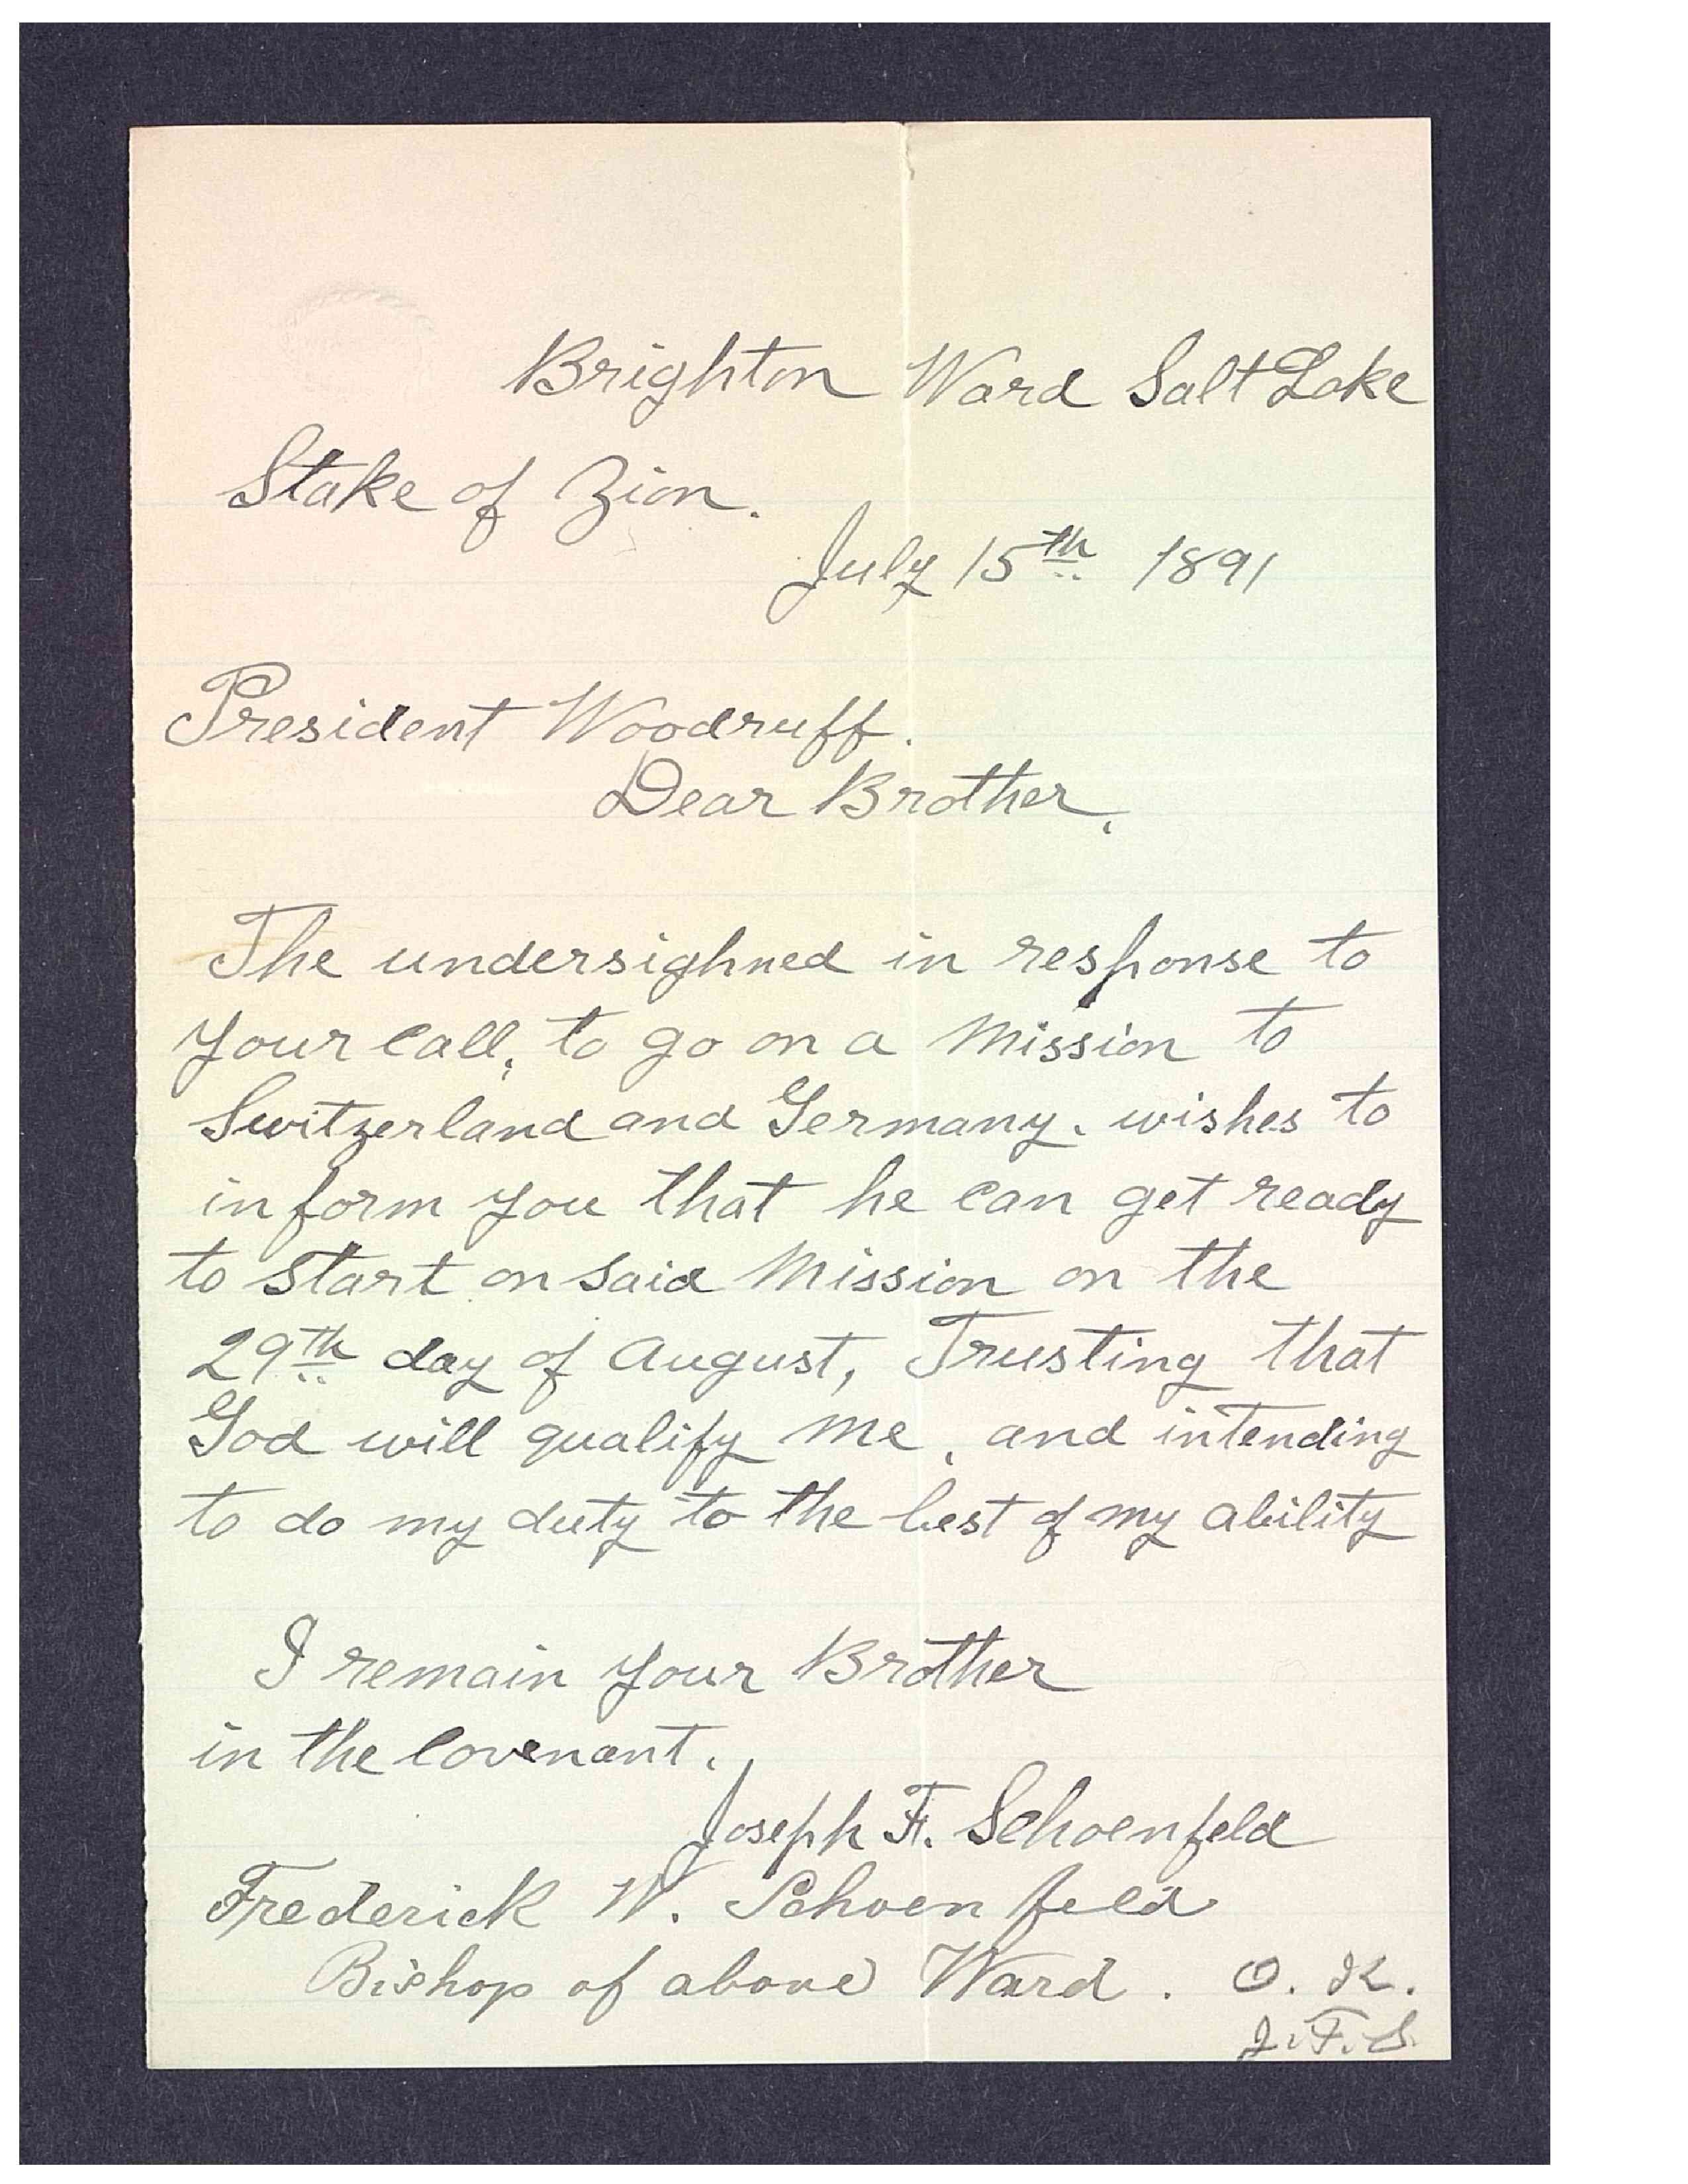 Brighton Ward Salt Lake
Stake of Zion.
July 15th 1891
President Woodruff.
Dear Brother,
The undersighned in response to
your call, to go on a Mission to
Switzerland and Germany. wishes to
inform you that he can get ready
to start on said Mission on the
29th day of August, Trusting that
God will qualify me, and intending
to do my duty to the best of my ability
I remain your Brother
in the Covenant.
Joseph F. Schoenfeld
Frederick W. Schoenfeld
Bishop of above Ward. O. K.
J. F. S.